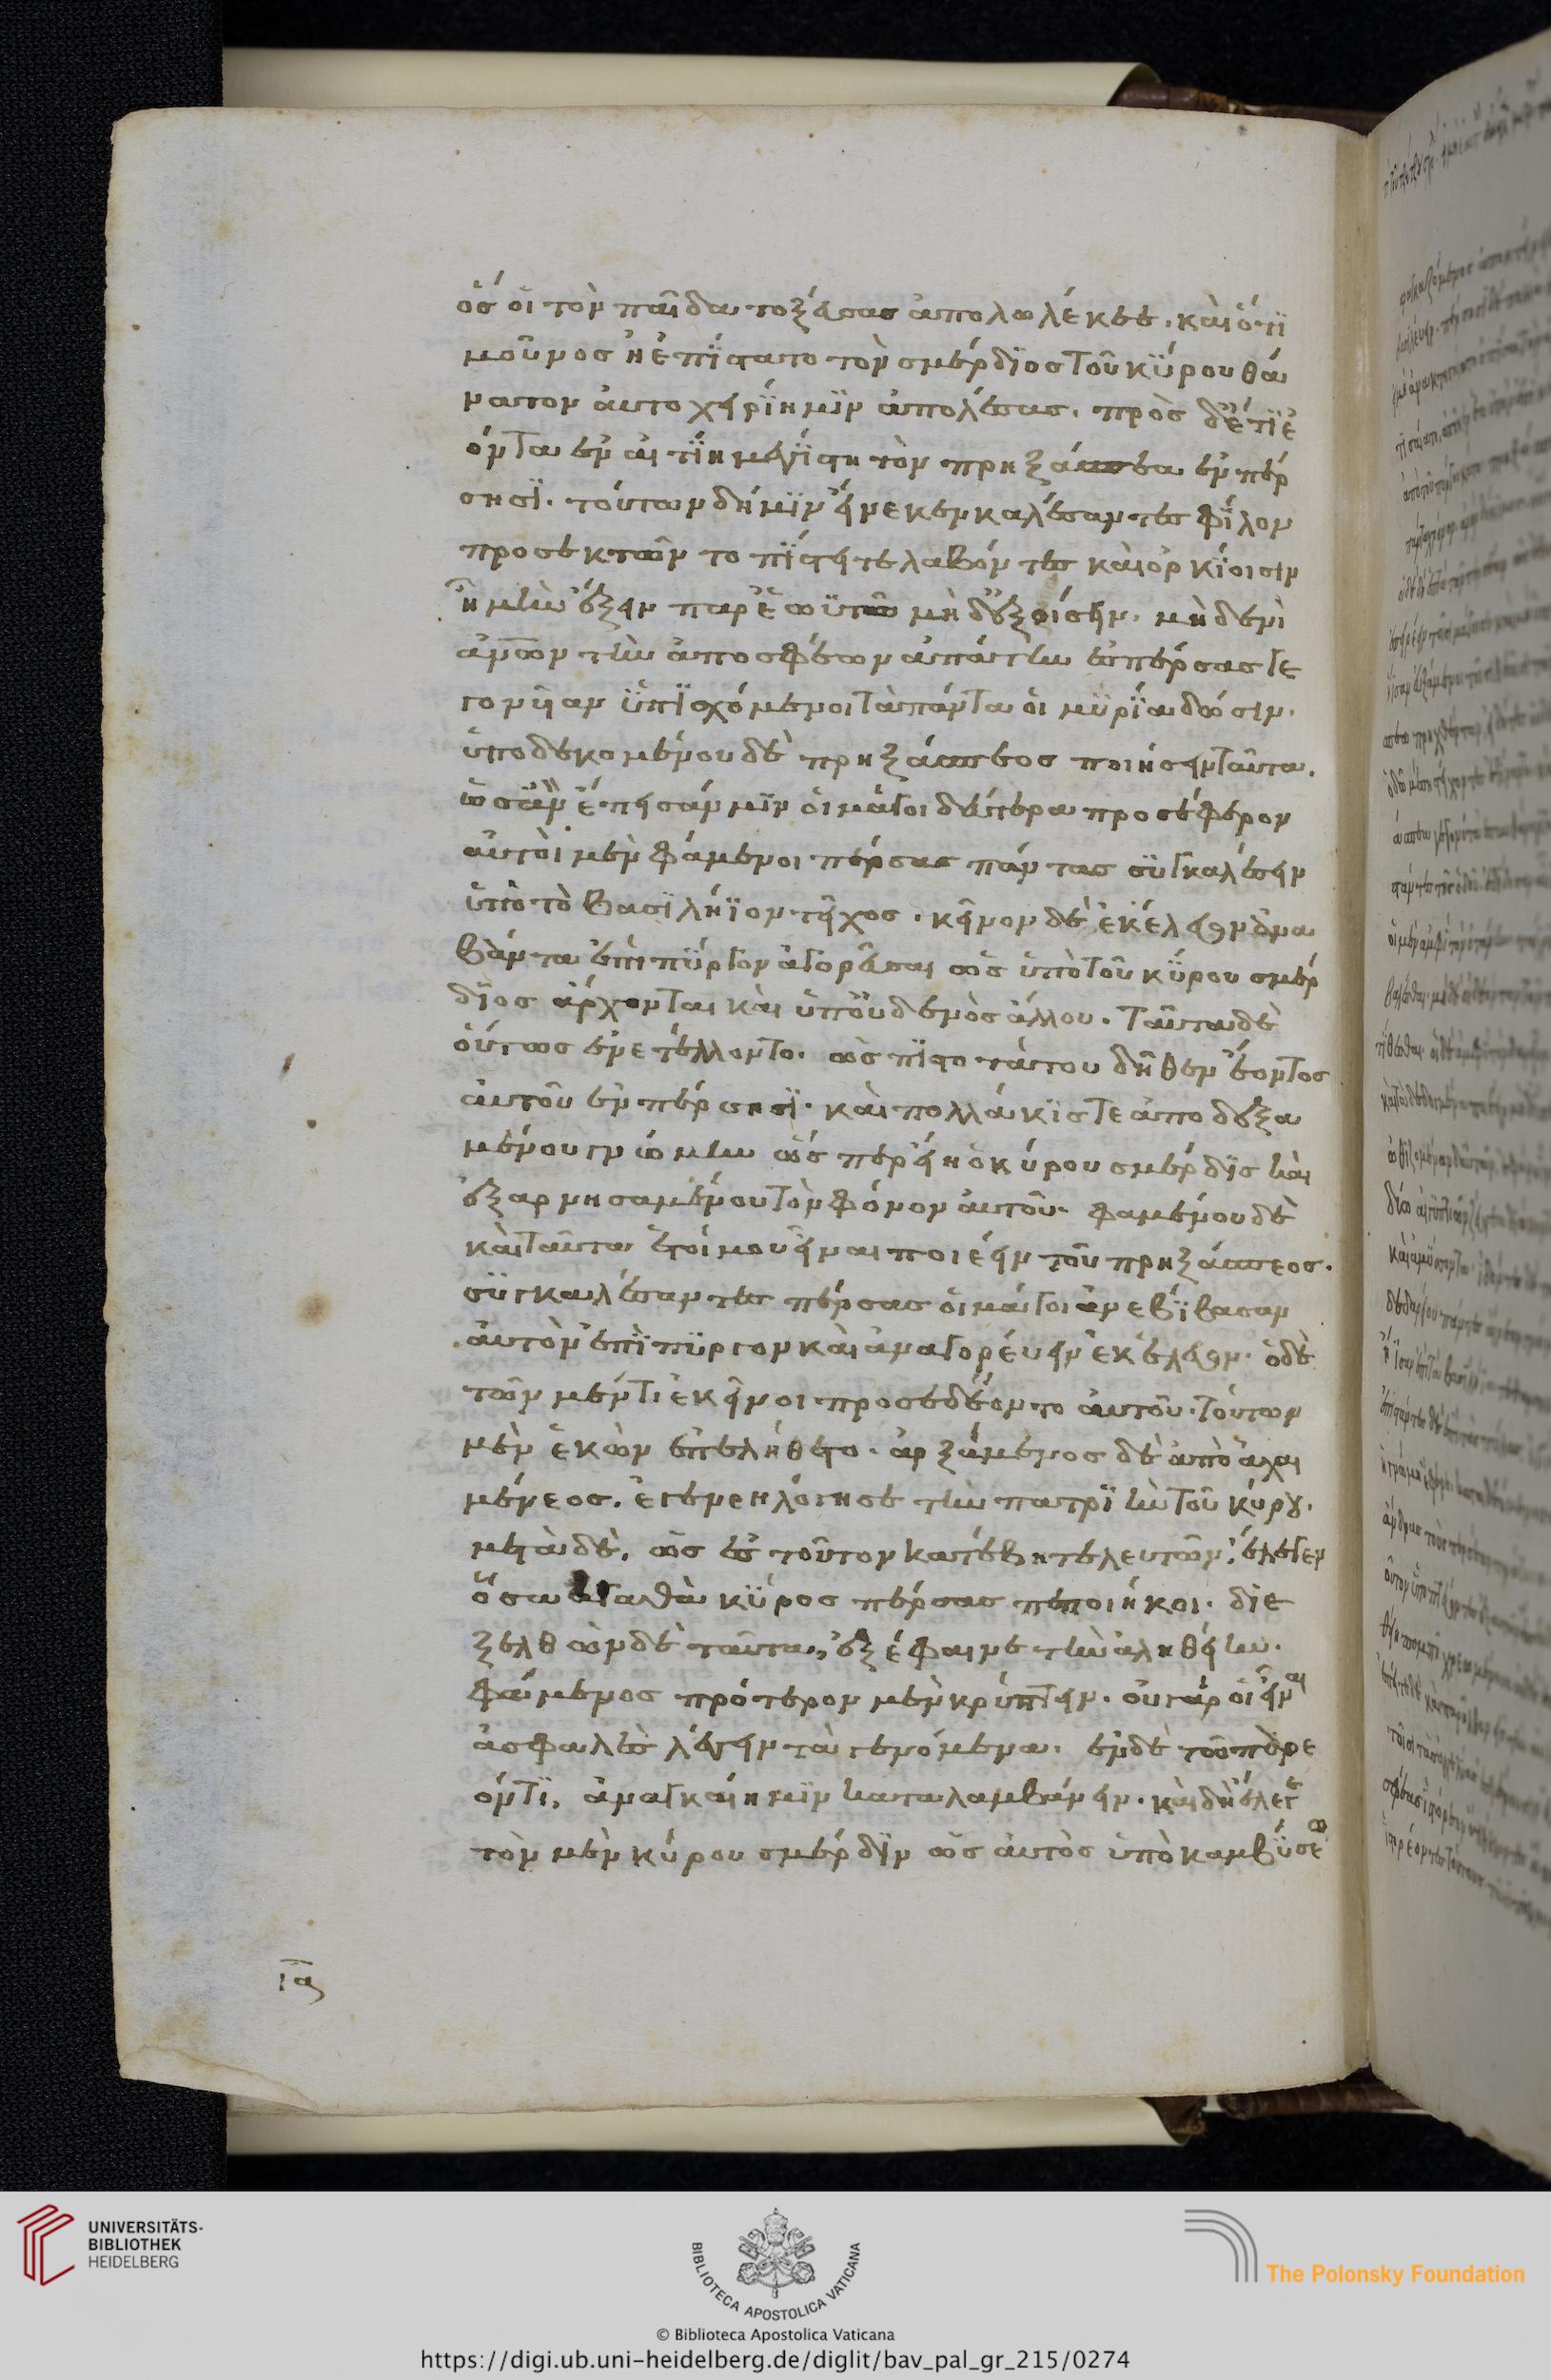 ὅς οἱ τὸν παῖδα τοξεύσας ἀπολωλέκεε. καὶ ὅτι
μοῦνος ἠπίστατο τὸν σμέρδιος τοῦ κύρου θά
νατον αὐτοχειρίη μιν ἀπολέσας. πρὸς δέτι ἐ
όντα ἐν αἰτίη μεγίστη τὸν πρηξάσπεα ἐν πέρ
σησι. τούτων δή μιν εἵνεκεν καλέσαντες φίλον
προσεκτῶντο πίστει τε λαβόντες καὶ ὁρκίοισιν
ἦ μὴν ἕξειν παρ' ἑωϋτῶ μὴδ' ἐξοίσειν. μηδενὶ
ἀνθρώπων τὴν ἀπὸ σφέων ἀπάτην ἐς πέρσας γε
γονυῖαν ὑπισχόμενοι τὰ πάντα οἱ μυρία δώσιν.
ὑποδεκομένου δὲ πρηξάσπεος ποιήσειν ταῦτα.
ὡς ἀνέπεισάν μιν οἱ μάγοι δεύτερα προσέφερον
αὐτοὶ μὲν φάμενοι πέρσας πάντας συγκαλέειν
ὑπὸ τὸ βασιλήϊον τεῖχος. κεῖνον δ' ἐκέλευον ἀνα
βάντα ἐπὶ πύργον ἀγορεῦσαι ὡς ὑπὸ τοῦ κύρου σμέρ
διος ἄρχονται καὶ ὑπ' οὐδενὸς ἄλλου. ταῦτα δὲ
οὕτως ἐνετέλλοντο. ὡς πιστοτάτου δῆθεν ἐόντος
αὐτοῦ ἐν πέρσησι. καὶ πολλάκις τε ἀποδεξα
μένου γνώμην ὡς περιείη ὁ κύρου σμέρδις καὶ
ἐξαρνησαμένου τὸν φόνον αὐτοῦ. φαμένου δὲ
καὶ ταῦτα ἑτοίμου εἶναι ποιέειν τοῦ πρηξάσπεος.
συγκαλέσαντες πέρσας οἱ μάγοι ἀνεβίβασαν
αὐτὸν ἐπὶ πύργον καὶ ἀναγορεύειν ἐκέλευον. ὁ δὲ
τῶν μέν τι ἐκεῖνοι προσεδέοντο αὐτοῦ. τούτων
μὲν ἑκὼν ἐπελήθετο. ἀρξάμενος δὲ ἀπὸ ἀχαι
μένεος. ἐγενεηλόγησε τὴν πατριὴν τοῦ κύρου.
μετὰ δὲ, ὡς ἐς τοῦτον κατέβη τελευτῶν. ἔλεγεν
ὅσα ἀγαθὰ κῦρος πέρσας πεποιήκοι. διε
ξελθὼν δὲ ταῦτα, ἐξέφαινε τὴν ἀληθείην.
φάμενος πρότερον μὲν κρύπτειν. οὐ γάρ οἱ εἶναι
ἀσφαλὲς λέγειν τὰ γενόμενα. ἐν δὲ τῶ παρε
όντι, ἀναγκαίη μιν καταλαμβάνειν. καὶ δὴ ἔλεγε
τὸν μὲν κύρου σμέρδιν ὡς αὐτὸς ὑπὸ καμβύσεω
ια
UNIVERSITÄTS-
BIBLIOTHEK
HEIDELBERG
BIBLIOTECA APOSTOLICA VATICANA
The Polonsky Foundation
© Biblioteca Apostolica Vaticana
https://digi.ub.uni-heidelberg.de/diglit/bav_pal_gr_215/0274